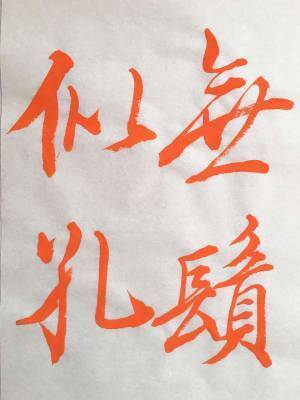 無鬚
似孔